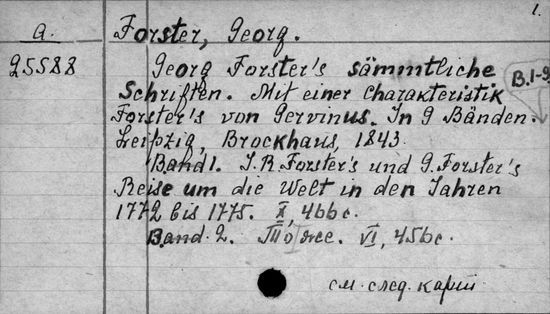 1.
a. Forster, Georg.
25588 Georg Forster's sämmtliche
Schriften. Mit einer Charakteristik B.1-9
Forster's von Gervinus. In 9 Bänden.
Leipzig, Brockhaus, 1843.
Band 1. J. R. Forster's und G. Forster's
Reise um die Welt in den Jahren
1772 bis 1775. X, 466 c.
Band. 2. То же. VI, 456 c.
см. след. карт